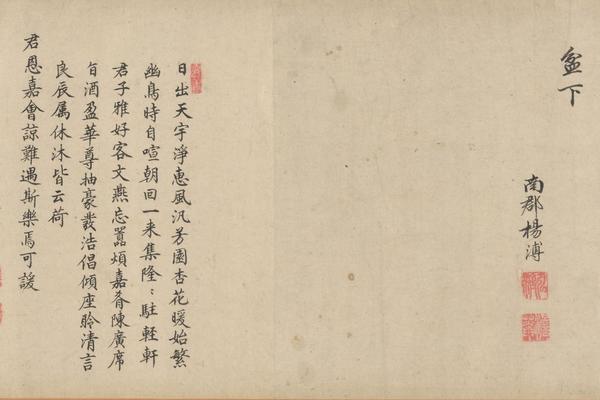 盆下
南郡楊溥
日出天宇淨惠風汎芳園杏花暖始繁
幽鳥時自喧朝回一来集隆〻駐軽軒
君子雅好客文燕忘嚣煩嘉肴陳廣席
旨酒盈華尊抽豪發浩倡傾座聆清言
良辰属休沐皆云荷
君恩嘉會諒難遇斯樂焉可諼